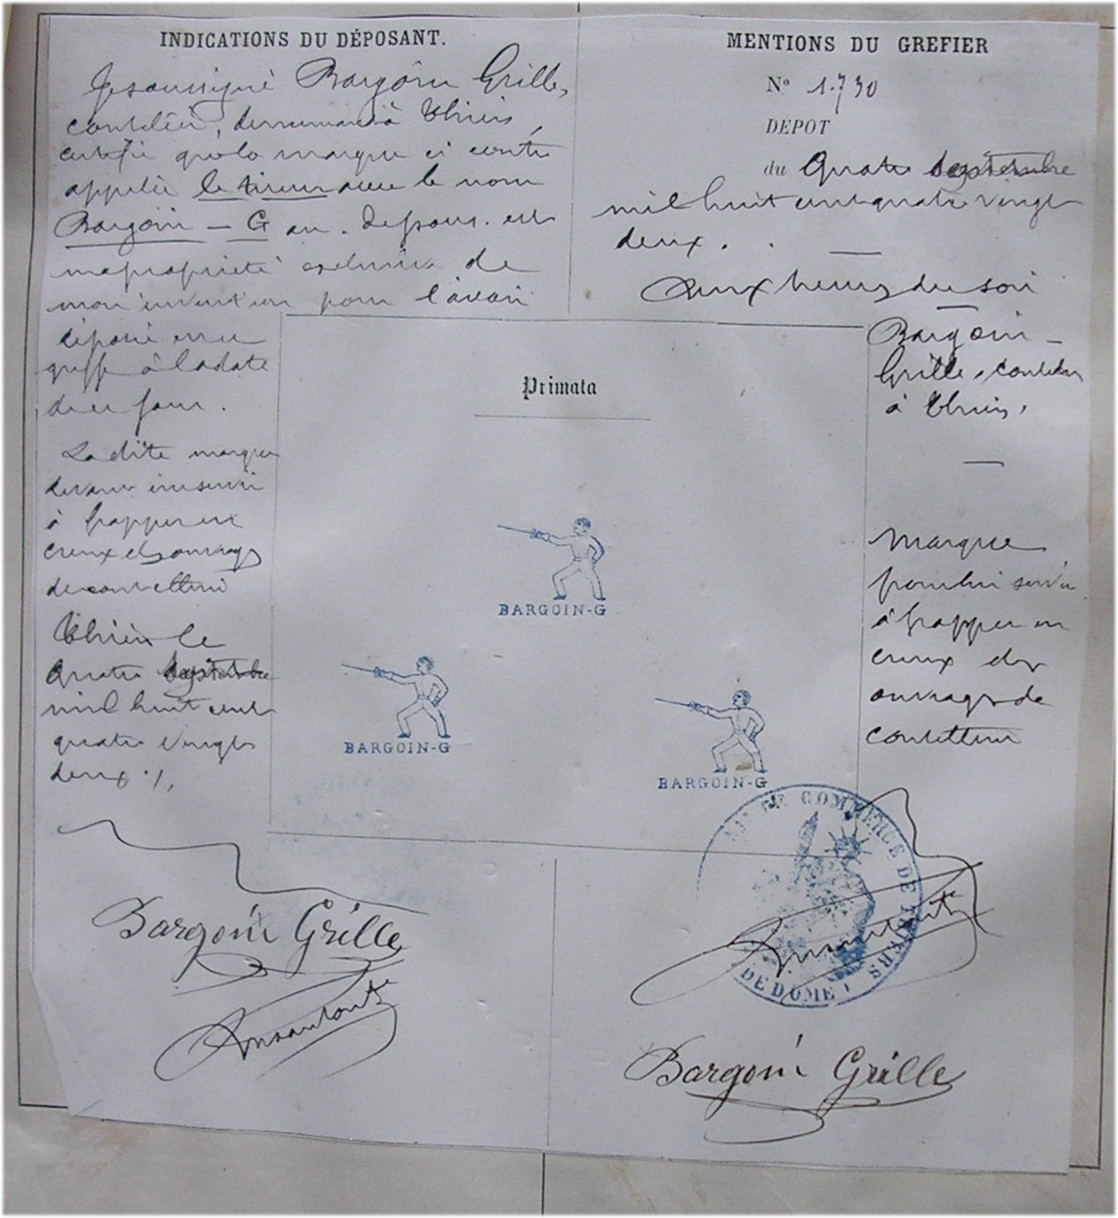 INDICATIONS DU DÉPOSANT.
Je soussigné Bargoin Grille,
coutelier, demeurant à Thiers,
certifie que la marque ci contre
appelée le tireur avec le nom
Bargoin - G au dessous est
ma propriété exclusive de
mon invention pour l'avoir
déposé au
greffe à la date
de ce jour.
La dite marque
devant me servir
à frapper en
creux des ouvrages
de coutellerie
Thiers le
quatre Septembre
mil huit cent
quatre vingt
deux ./.
Bargoin Grille
MENTIONS DU GREFIER
N° 1.730
DÉPOT
du Quatre Septembre
mil huit cent quatre vingt
deux.
heures du soir
Bargoin -
Grille, coutelier
à Thiers,
Marque
pour lui servir
à frapper en
creux des
ouvrages de
coutellerie
Primata
BARGOIN-G
BARGOIN-G
BARGOIN-G
DE COMMERCE DE THIERS
DE DOME
Bargoin Grille